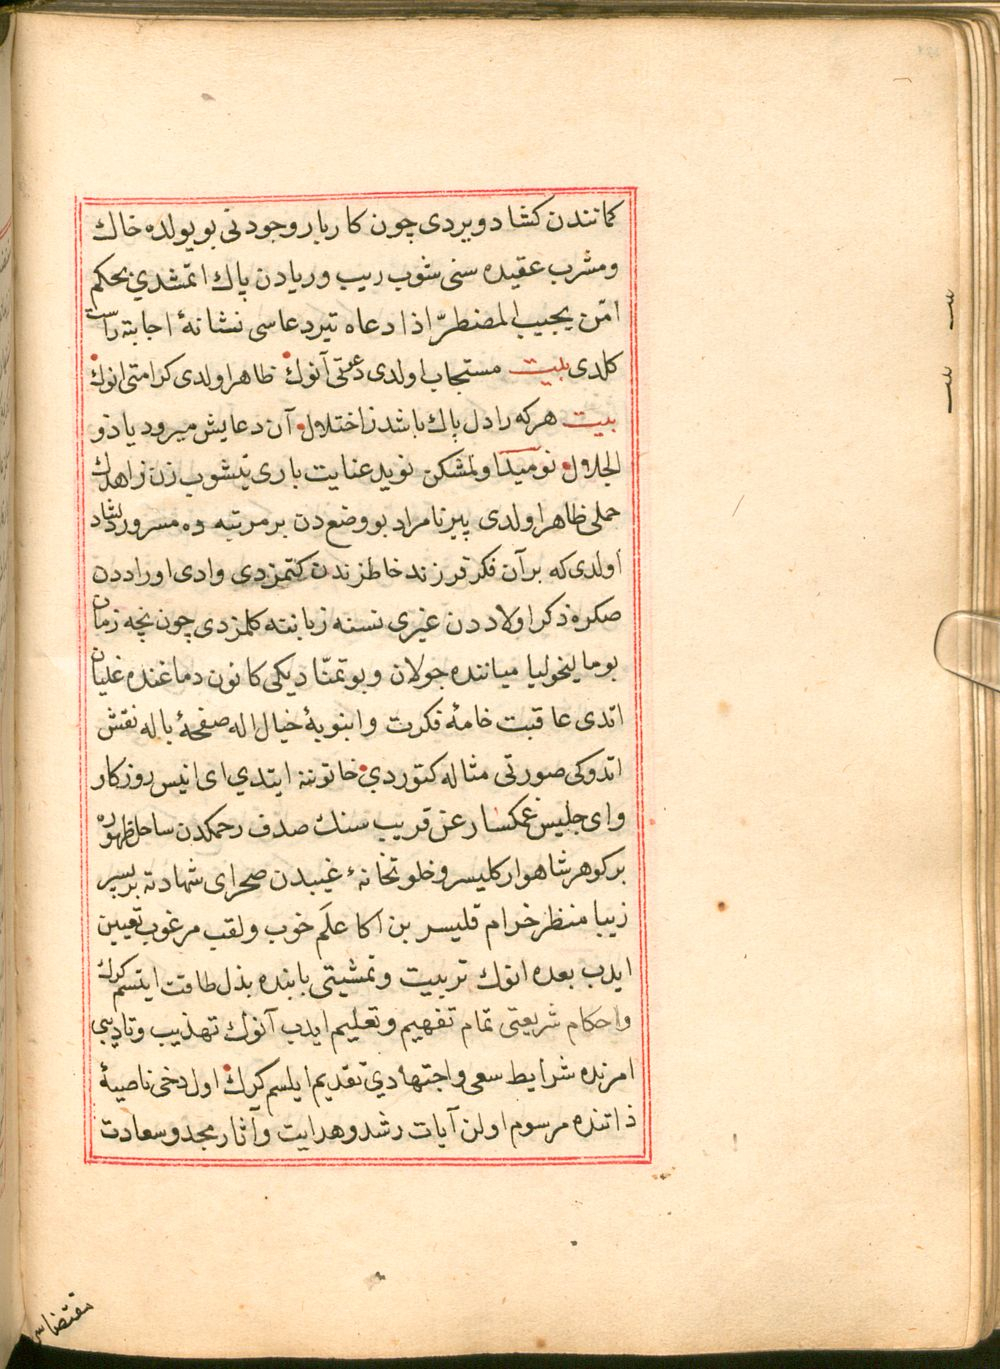 كمانندن كشاد ويردى چون كاربار وجودنى بو يولده خاك
ومشرب عقيده سنى شوب ريب وريادن پاك اتمشدي بحكم
امّن يجيب المضطرّ اذا دعاه تير دعاسى نشانهٔ اجابته راست
كلدى بيت مستجاب اولدى دعوتى آنوك ظاهر اولدى كرامتى انوك
بيت هركه را دل پاك باشد ز اختلال آن دعايش ميرود يا ذو
الجلال نوميد اولمشكن نويد عنايت بارى يتيشوب زن زاهدك
حملى ظاهر اولدى پير نامراد بو وضعدن بر مرتبه ده مسرور ودلشاد
اولدى كه بر آن فكر فرزند خاطرندن كتمزدى وادى اوراددن
صكره ذكر اولاددن غيرى نسنه زباننه كلمزدى چون نچه زمان
بو ماليخوليا مياننده جولان وبو تمنّا ديكى كانون دماغنده غليان
اتدى عاقبت خامهٔ فكرت وابنوبهٔ خيال اله صفحهٔ باله نقش
اتدوكى صورتى مثاله كتوردي خاتوننه ايتدي اى انيس روزكار
واى جليس غمكسار عن قريب سنك صدف رحمكدن ساحل ظهوره
بر كوهر شاهوار كليسر وخلوتخانهٔ غيبدن صحراى شهادته بر پسر
زيبا منظر خرام قليسر بن اكا علَم خوب ولقب مرغوب تعيين
ايدب بعده انوك تربيت وتمشيتى بابنده بذل طاقت ايتسم كرك
واحكام شريعتى تمام تفهيم وتعليم ايدب آنوك تهذيب وتاديبى
امرنده شرايط سعى واجتهادي تقديم ايلسم كرك اول دخى ناصيهٔ
ذاتنده مرسوم اولن آيات رشد وهدايت وآثار مجد وسعادت